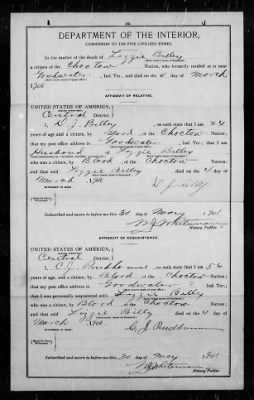 DEPARTMENT OF THE INTERIOR,
COMMISSION TO THE FIVE CIVILIZED TRIBES.
In the matter of the death of Lizzie Billy
a citizen of the Choctaw Nation, who formerly resided at or near
Goodwater, Ind. Ter., and died on the 4 day of March
1900
AFFIDAVIT OF RELATIVE.
UNITED STATES OF AMERICA,
Central District.
I, D. J. Billy, on oath state that I am
years of age and a citizen, by Blood, of the Choctaw Nation;
that my post office address is Goodwater, Ind. Ter.; that I am
Husband of Lizzie Billy
who was a citizen, by Blood, of the Choctaw Nation
and that said Lizzie Billy died on the 4 day of
March, 1900
D. J. Billy
Subscribed and sworn to before me this 30 day of May 1901
Notary Public.
AFFIDAVIT OF ACQUAINTANCE.
UNITED STATES OF AMERICA,
Central District.
I, on oath state that I am 56
years of age, and a citizen, by Blood, of the Choctaw Nation;
that my post office address is Goodwater, Ind. Ter.;
that I was personally acquainted with Lizzie Billy
who was a citizen, by Blood, of the Choctaw Nation;
and that said Lizzie Billy died on the 4 day of
March, 1900
Subscribed and sworn to before me this 30 day of May 1901
Notary Public.